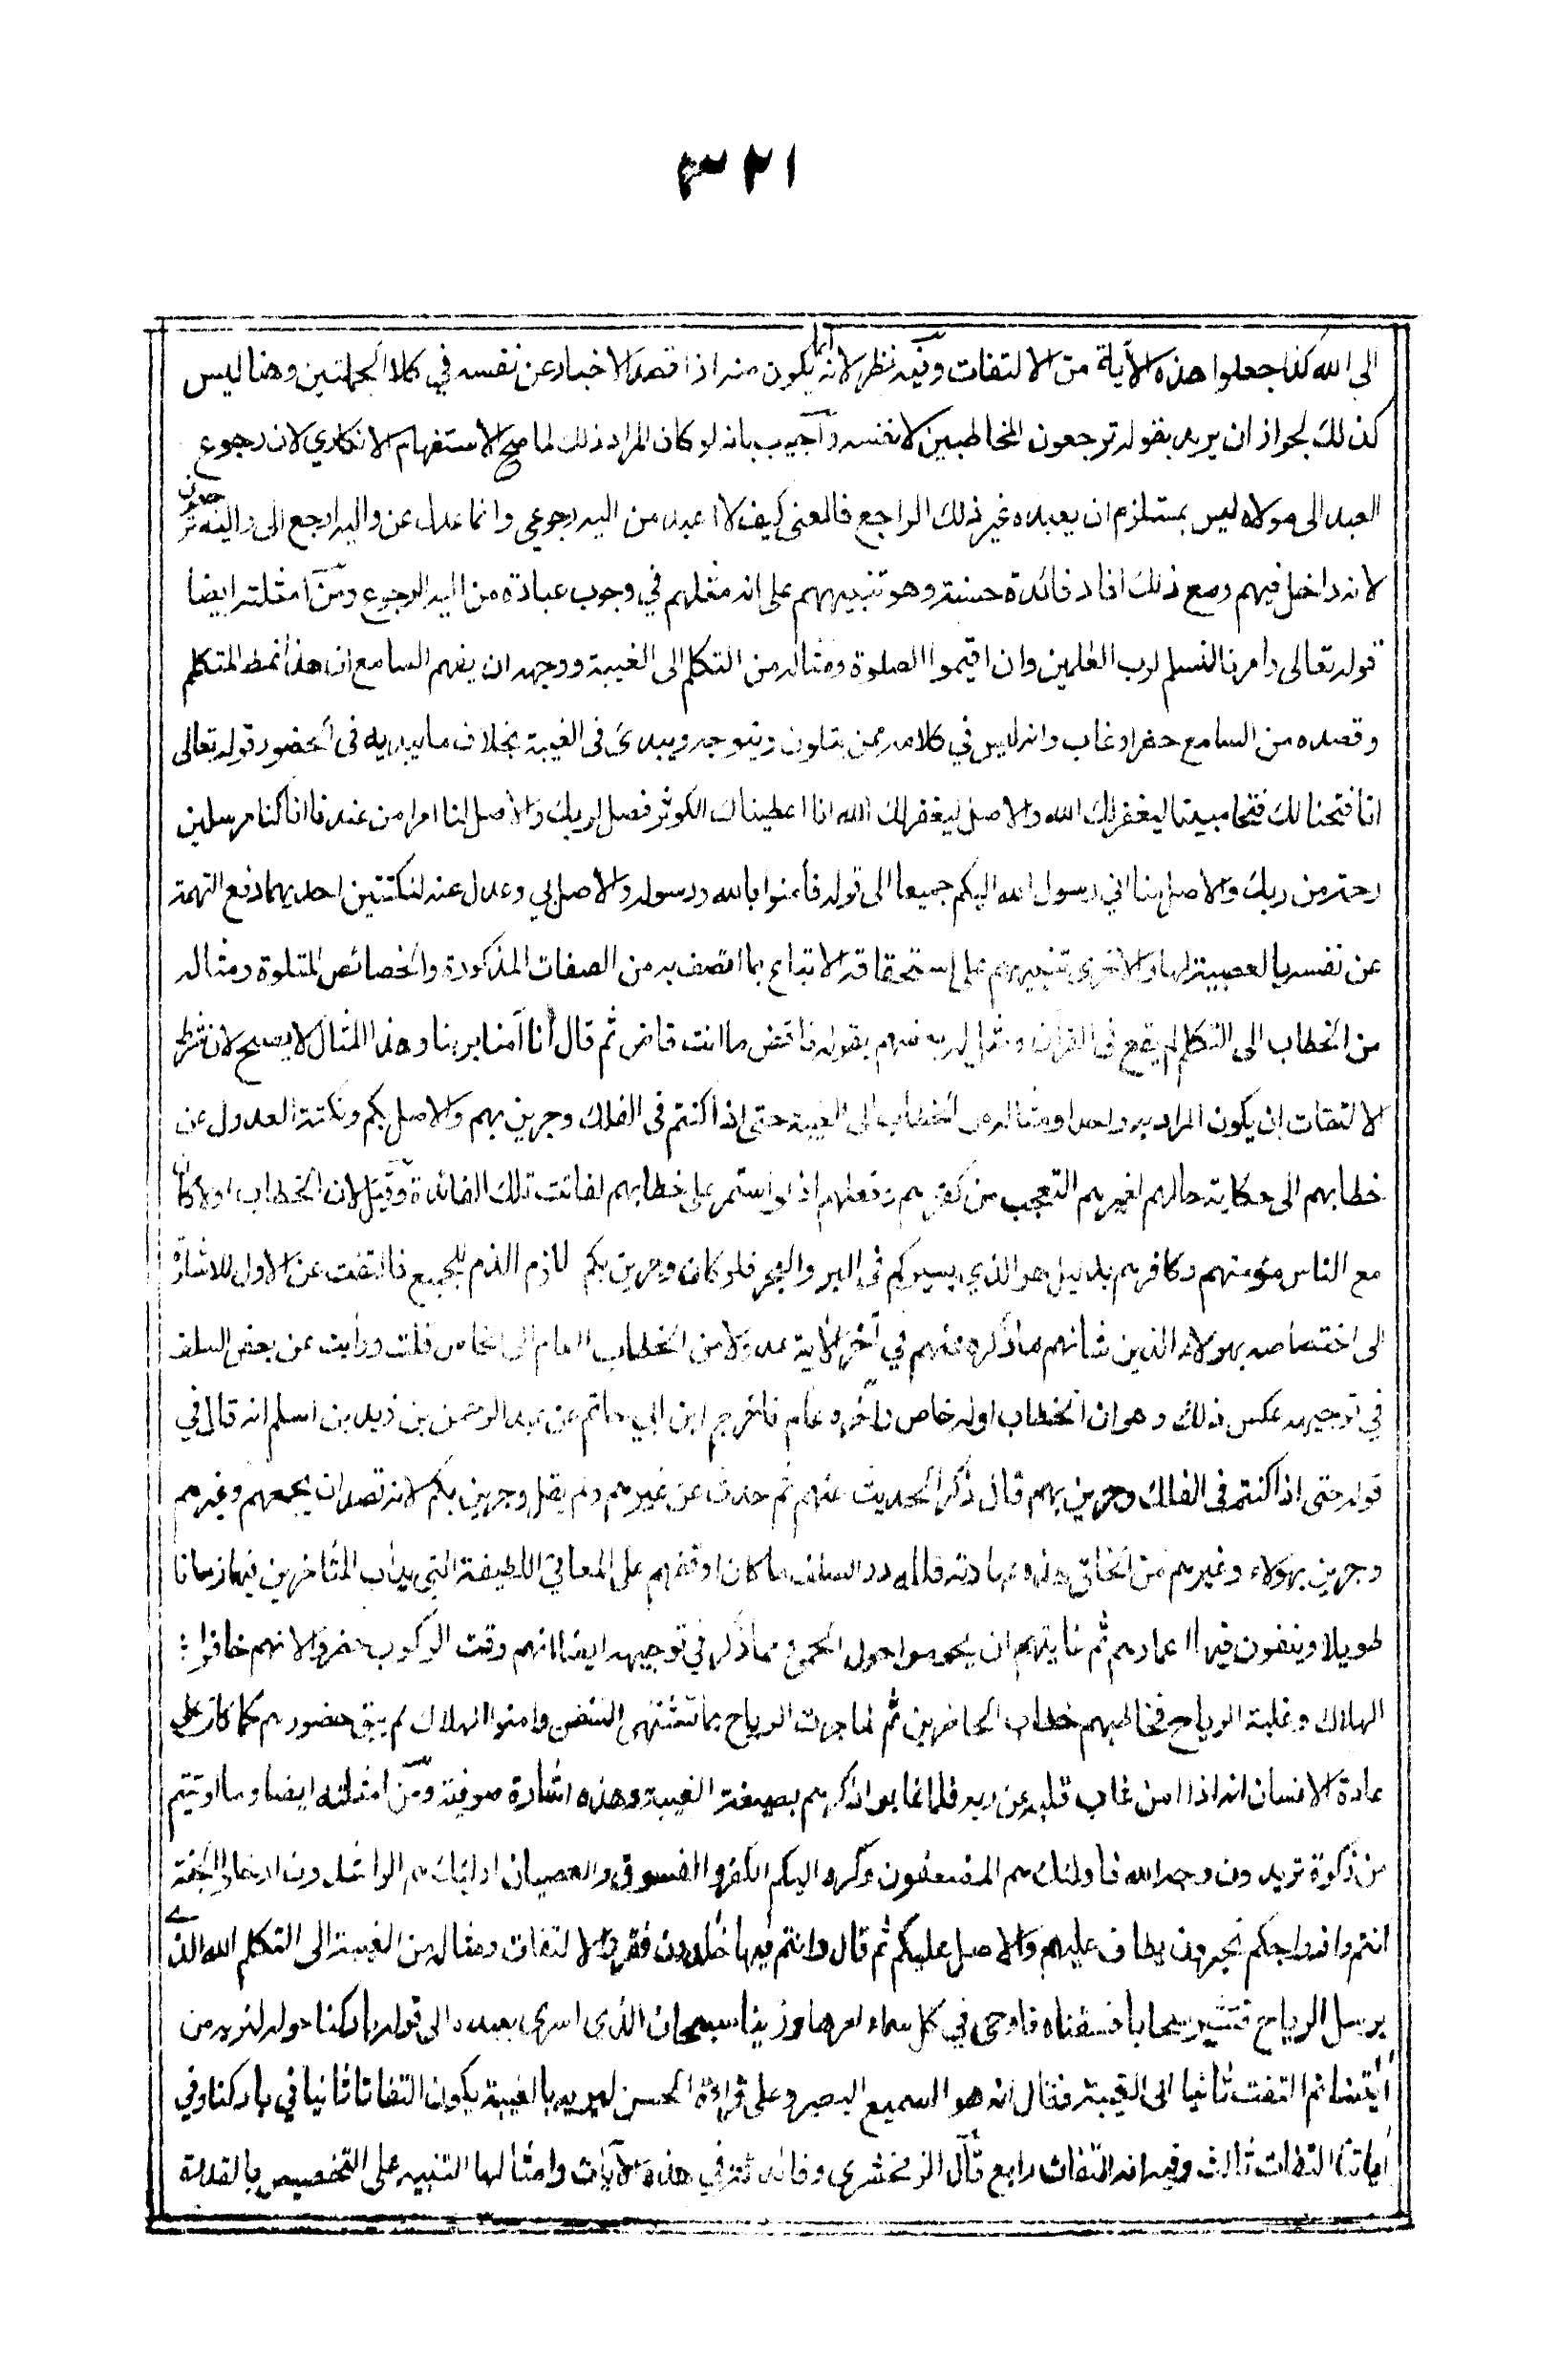 ٣٢١
الى الله كذا جعلوا هذه الآية من الالتفات وفيه نظر لانه انما يكون منه اذا قصد الاخبار عن نفسه في كلا الجملتين وهنا ليس
كذلك لجواز ان يريد بقوله ترجعون المخاطبين لا نفسه واجيب بانه لو كان المراد ذلك لما صح الاستفهام الانكاري لان رجوع
العبد الى مولاه ليس بمستلزم ان يعبده غير ذلك الراجع فالمعنى كيف لا اعبد من اليه رجوعي وانما عدل عن واليه ارجع الى واليه ترجعون
لانه داخل فيهم ومع ذلك افاد فائدة حسنة وهو تنبيههم على انه مثلهم في وجوب عبادة من اليه الرجوع ومن امثلته ايضا
قوله تعالى وامرنا لنسلم لرب العلمين وان اقيموا الصلوة ومثاله من التكلم الى الغيبة ووجهه ان يفهم السامع ان هذا نمط المتكلم
وقصده من السامع حضر او غاب وانه ليس في كلامه ممن يتلون ويتوجه ويبدى فى الغيبة بخلاف ما يبديه فى الحضور قوله تعالى
انا فتحنا لك فتحا مبينا ليغفر لك الله والاصل ليغفر لك الله انا اعطيناك الكوثر فصل لربك والاصل لنا امرا من عندنا انا كنا مرسلين
رحمة من ربك والاصل منا اني رسول الله اليكم جميعا الى قوله فآمنوا بالله ورسوله والاصل بي وعدل عنه لنكتتين احديهما دفع التهمة
عن نفسه بالعصبية لها والاخرى تنبيههم على استحقاقه الاتباع بما اتصف به من الصفات المذكورة والخصائص المتلوة ومثاله
من الخطاب الى التكلم لم يقع فى القرآن ومثل له بعضهم بقوله فاقض ما انت قاض ثم قال انا آمنا بربنا وهذا المثال لا يصح لان شرط
الالتفات ان يكون المراد به واحدا ومثاله من الخطاب الى الغيبة حتى اذا كنتم فى الفلك وجرين بهم والاصل بكم ونكتة العدول عن
خطابهم الى حكاية حالهم لغيرهم التعجب من كفرهم وفعلهم اذ لو استمر على خطابهم لفاتت تلك الفائدة وقيل لان الخطاب اولا كان
مع الناس مؤمنهم وكافرهم بدليل هو الذي يسيركم فى البر والبحر فلو كان وجرين بكم لازم الذم للجميع فالتفت عن الاول للاشارة
الى اختصاصه بهولاء الذين شانهم ما ذكره عنهم في آخر الآية عدولا من الخطاب العام الى الخاص قلت ورأيت عن بعض السلف
في توجيهه عكس ذلك وهو ان الخطاب اوله خاص وآخره عام فاخرج ابن ابي حاتم عن عبد الرحمن بن زيد بن اسلم انه قال في
قوله حتى اذا كنتم فى الفلك وجرين بهم قال ذكر الحديث عنهم ثم حدث عن غيرهم ولم يقل وجرين بكم لانه قصد ان يجمعهم وغيرهم
وجرين بهولاء وغيرهم من الخلق هذه عبارته فلله در السلف ما كان اوقفهم على المعاني اللطيفة التي يدأب المتأخرين فيها زمانا
طويلا ويفنون فيها اعمارهم ثم غايتهم ان يحوموا حول الحمى ومما ذكر في توجيهه ايضا انهم وقت الركوب حضروا لانهم خافوا
الهلاك وغلبة الرياح فخاطبهم خطاب الحاضرين ثم لما جرت الرياح بما تشتهى السفن وامنوا الهلاك لم يبق حضورهم كما كان على
عادة الانسان انه اذا امن غاب قلبه عن ربه فلما غابوا ذكرهم بصيغة الغيبة وهذه اشارة صوفية ومن امثلته ايضا وما اوتيتم
من زكوة تريدون وجه الله فأولئك هم المضعفون وكره اليكم الكفر والفسوق والعصيان اولئك هم الراشدون ادخلوا الجنة
انتم وازواجكم تحبرون يطاف عليهم والاصل عليكم ثم قال وانتم فيها خلدون فكرر الالتفات ومثاله من الغيبة الى التكلم الله الذي
يرسل الرياح فتثير سحابا فسقناه فاوحى في كل سماء امرها وزينا سبحان الذى اسرى بعبده الى قوله باركنا حوله لنريه من
آيتنا ثم التفت ثانيا الى الغيبة فقال انه هو السميع البصير وعلى قراءة الحسن ليريه بالغيبة يكون التفاتا ثانيا في باركنا وفي
آياتنا التفات ثالث وفي انه التفات رابع قال الزمخشرى وفائدته في هذه الآيات وامثالها التنبيه على التخصيص بالقدرة